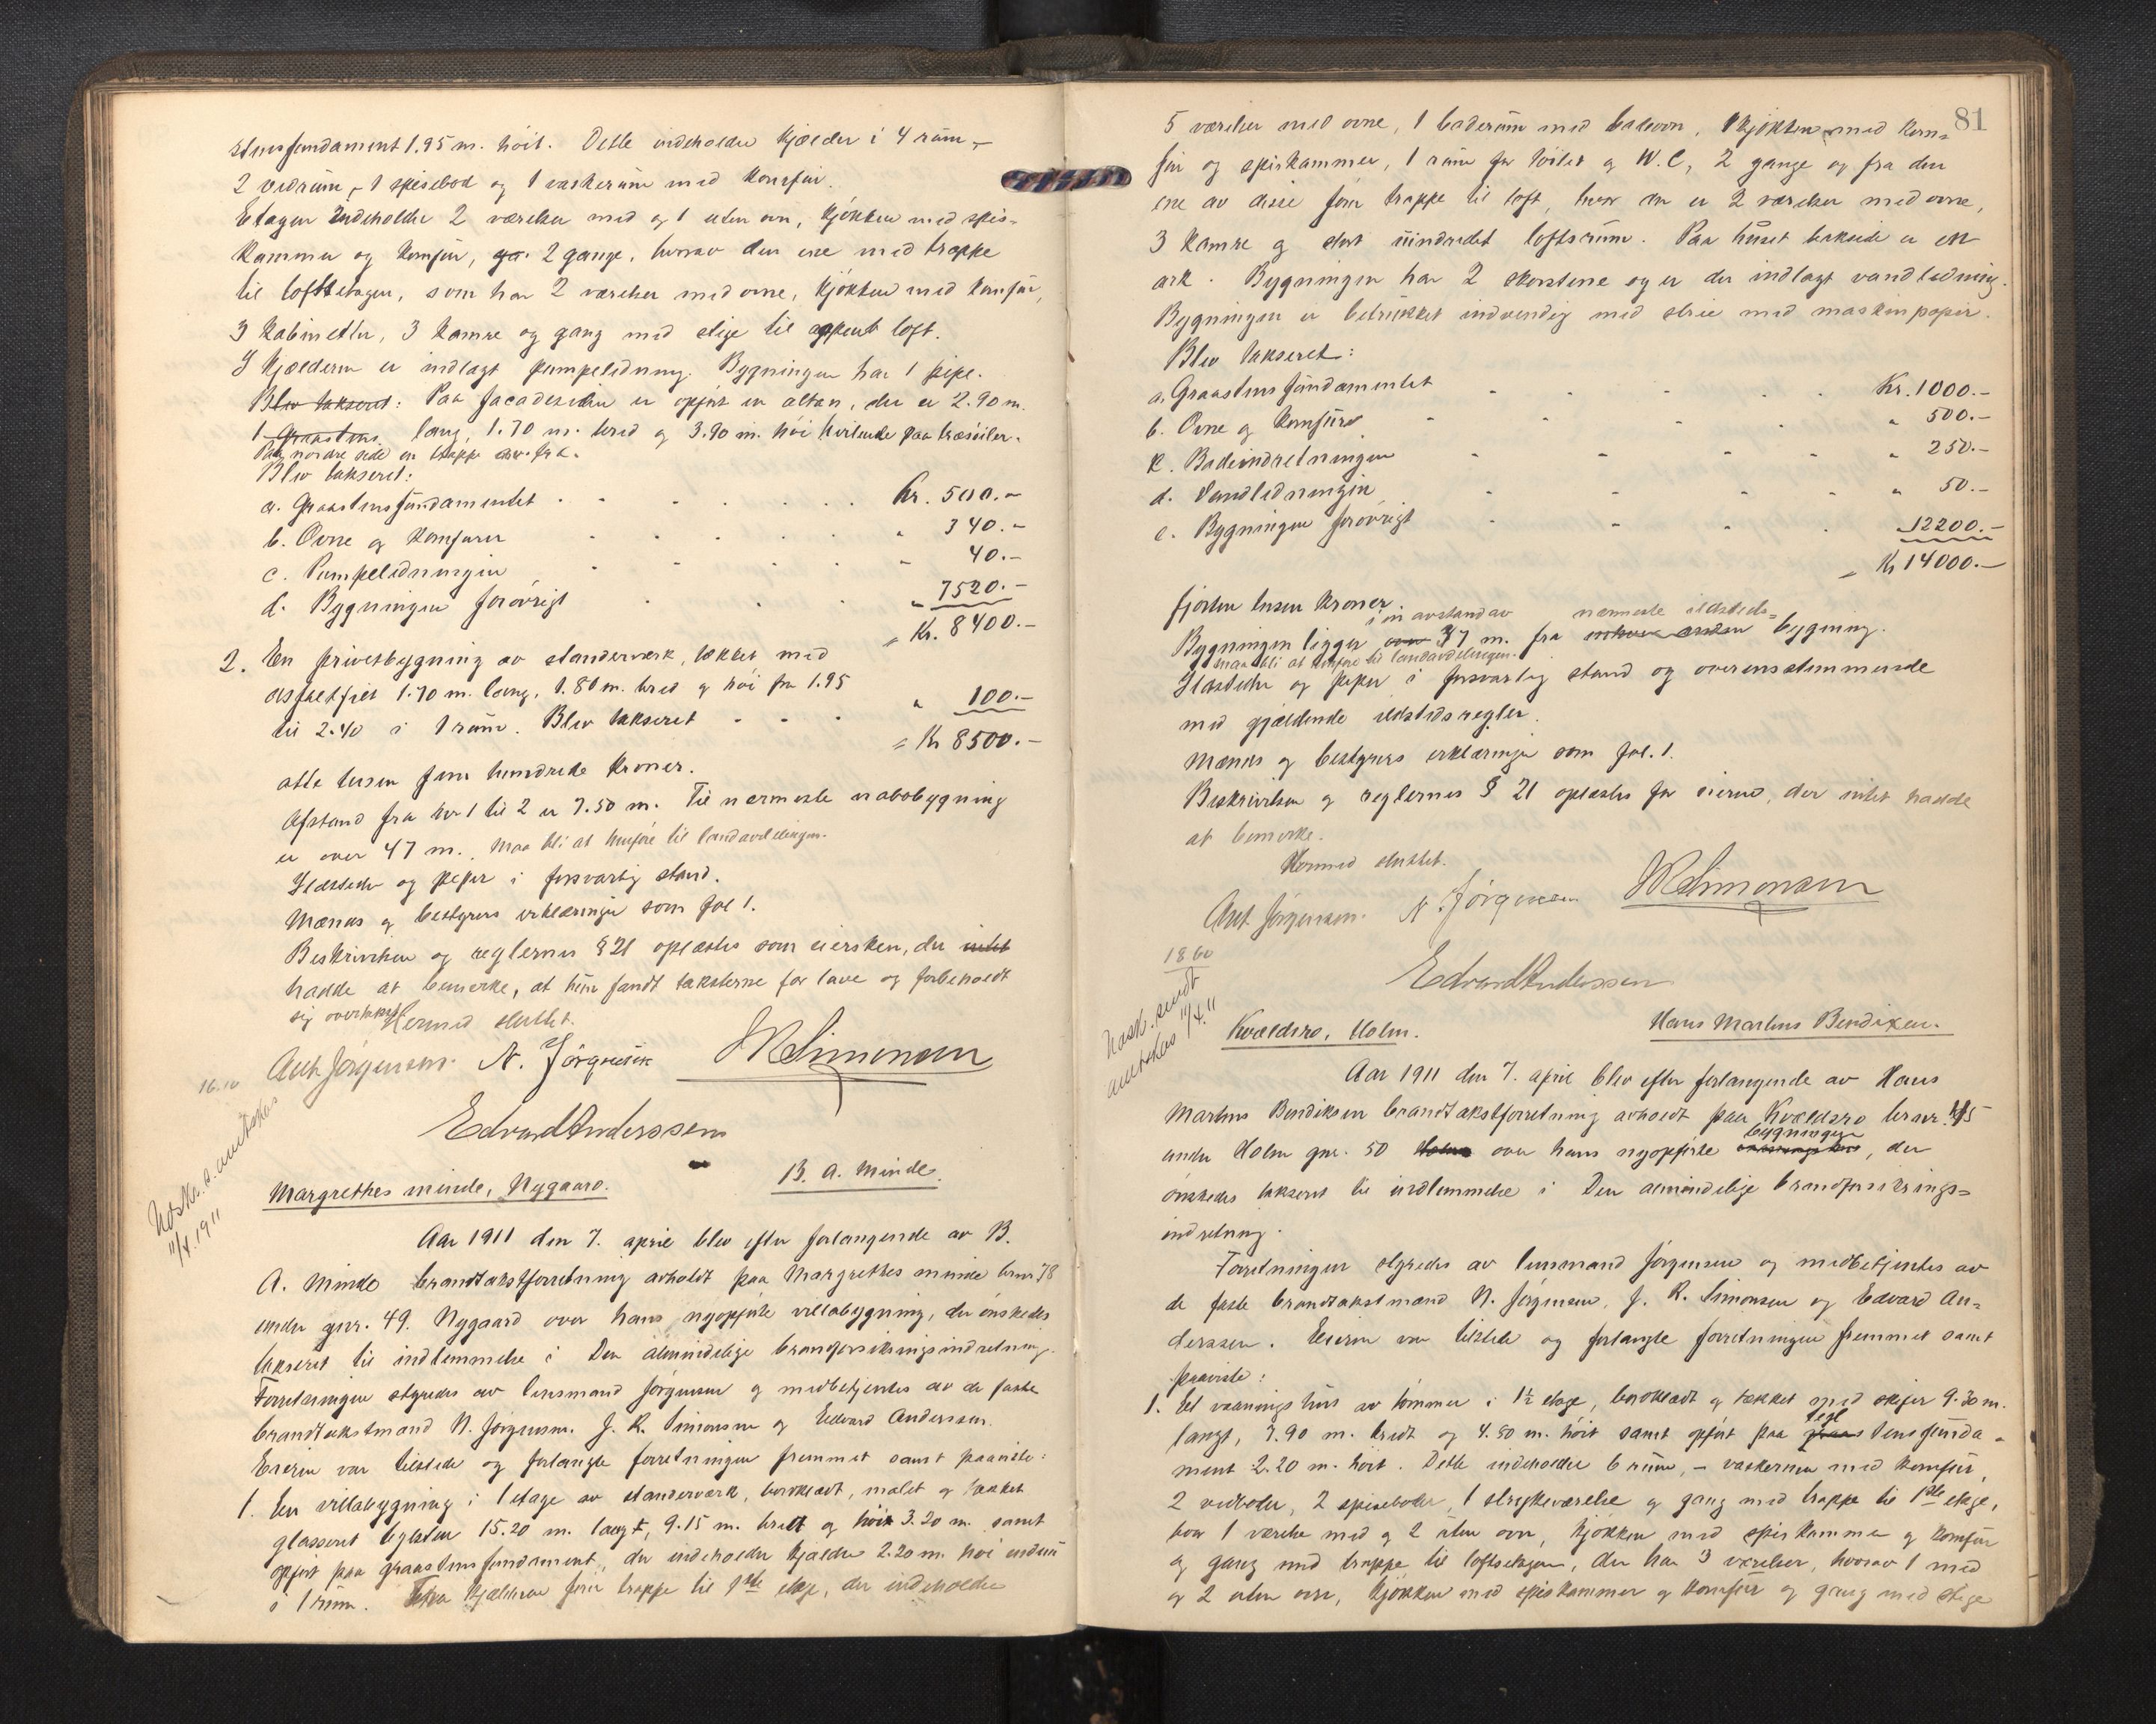 stensfundament 1.95 m. höit. Dette indeholder kjælder i 4 rüm, -
2 vedrüm, 1 spisebod og 1 vaskerüm med komfür.
Etagen indeholder 2 værelser med og 1 uten ovn, kjökken med spis=
kammer og komfür, 2 gange, hvorav den ene med trappe
til loftsetagen, som har 2 værelser med ovne, kjökken med komfür,
3 kabinetter, 3 kamre og gang med stige til aapent loft.
I kjælderen er indlagt pumpeledning. Bygningen har 1 pipe.
Blev takseret: Paa facadesiden er opfört en altan, der er 2.90 m.
1 Graastens lang, 1.70 m. bred og 3.90 m. höi hvilende paa træsöiler.
Paa nordre side en trappe
Blev takseret:
a. Graastensfündamentet . . . . . Kr. 500.-
b. Ovne og komfürer . . . . . " 340.-
c. Pumpeledningen . . . . " 40.-
d. Bygningen forövrigt . . . " 7520.-
= Kr. 8400.-
2. En privetbygning av standerværk, tækket med
asfaltfilt 1.70 m. lang, 1.80 m. bred og höi fra 1.95
til 2.40 i 1 rüm. Blev takseret - - - " 100.-
= Kr 8500.-
otte tusen fem hundrede kroner.
Afstand fra br 1 til 2 er 7.50 m. Til nærmeste nabobygning
er over 47 m. Maa bli at henföre til landavdelingen.
Ildsteder og piper i forsvarlig stand.
Mænds og bestyrers erklæringer som fol 1.
Beskrivelsen og reglernes § 21 oplæstes som eiersken, der intet
hadde at bemerke, at hün fandt taksterne for lave og forbeholdt
sig overtakst
Hermed sluttet.
Ant. Jörgensen. N. Jörgensen J R Simonsen
16.10
Edvard Anderssen
Utskr. s. amtskas
11/4.1911
Margrethes minde, Nygaard. - B. A. Minde.
Aar 1911 den 7. april blev efter forlangende av B.
A. Minde brandtakstforretning avholdt paa Margrethes minde brnr 78
under gnr. 49. Nygaard over hans nyopförte villabygning, der önskedes
takseret til indlemmelse i Den almindelige brandforsikringsindretning.
Forretningen styredes av lensmand Jörgensen og medbetjentes av de faste
brandtakstmænd N. Jörgensen, J. R. Simonsen og Edvard Anderssen.
Eieren var tilstede og forlangte forretningen fremmet samt paaviste:
1. En villabygning i 1 etage av standerværk, bordklædt, malet og tækket
glasseret teglsten 15.20 m. langt, 9.15 m. bredt og höi 3.20 m. samt
opfört paa graastensfundament, der indeholder kjælder 2.20 m. höi indünd
i 1 rüm. Fra kjælderen förer trappe til 1ste etage, der indeholder
81
5 værelser med ovne, 1 baderüm med badeovn, 1 kjökken med kom=
für og spiskammer, 1 rüm for toilet og W.C, 2 gange og fra den
ene av disse förer trappe til loft, hvor der er 2 værelser med ovne,
3 kamre og stort üindredet loftsrüm. Paa hüset bakside er en
ark. Bygningen har 2 skorstene og er der indlagt vandledning.
Bygningen er betrükket indvendig med strie med maskinpapir.
Blev takseret:
a. Graastensfündamentet - - - . . Kr. 1000.-
b. Ovne og komfürer - - - - " 500.-
c. Badeindretningen - - - - " 250.-
d. Vandledningen - - - - " 50.-
e. Bygningen forövrigt - - - . 12200.-
= Kr 14000.-
fjorten tusen kroner.
i en avstand av nærmeste ildsteds=
Bygningen ligger over 37 m. fra bygning.
Maa bli at henföre til landavdelingen.
Ildsteder og piper i forsvarlig stand og overensstemmende
med gjældende ildstedsregler.
Mænds og bestyrers erklæringer som fol. 1.
Beskrivelsen og reglernes § 21 oplæstes for eieren, der intet hadde
at bemerke.
Hermed sluttet.
Ant. Jörgensen. N. Jörgensen J R Simonsen
1860
Edvard Anderssen
Utsk. sendt
amtskas 11/4.11
Kvældsro, Holm. Hans Martins Bendixen.
Aar 1911 den 7. april blev efter forlangende av Hans
Martins Bendiksen brandtakstforretning avholdt paa Kvældsro brnr. 45
under Holm gnr. 50 Holm over hans nyopförte bygninger, der
önskedes takseret til indlemmelse i Den almindelige brandforsikrings=
indretning.
Forretningen styredes av lensmand Jörgensen og medbetjentes av
de faste brandtakstmænd N. Jörgensen, J. R. Simonsen og Edvard An=
derssen. Eieren var tilstede og forlangte forretningen fremmet samt
paaviste:
1. Et vaaningshüs av tömmer i 1½ etage, bordklædt og tækket med skifer 9.30 m.
langt, 7.90 m. bredt og 4.50 m. höit samt opfört paa tegl stensfünda=
ment 2.20 m. höit. Dette indeholder 6 rüm, - vaskerum med komfür,
2 vedboder, 2 spiseboder, 1 strykeværelse og gang med trappe til 1ste etage,
hvor 1 værelse med og 2 uten ovn, kjökken med spiskammer og komfür
og gang med trappe til loftsetagen, der har 3 værelser, hvorav 1 med
og 2 uten ovn, kjökken med spiskammer og komfür og gang med stige